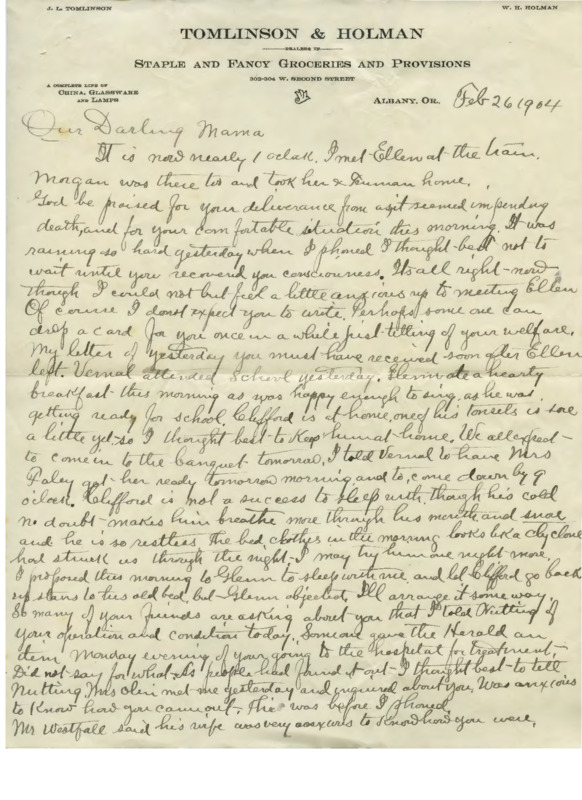 J. L. TOMLINSON W. H. HOLMAN
TOMLINSON & HOLMAN
DEALERS IN
STAPLE AND FANCY GROCERIES AND PROVISIONS
302-304 W. SECOND STREET
A COMPLETE LINE OF
CHINA, GLASSWARE
AND LAMPS
ALBANY, OR. Feb 26 1904
Our Darling Mama
It is now nearly 1 oclak. I met Ellen at the train.
Morgan was there too and took her & home.
God be praised for your deliverance from as it seemed impending
death, and for your comfortable situation this morning. It was
raining so hard yesterday when I phoned I thought best not to
wait until you recovered you consciousness. Its all right now
though I could not but feel a little anxious up to meeting Ellen
Of course I donst expect you to write. Perhaps some one can
drop a card for you once in a while just telling of your welfare.
My letter of yesterday you must have received soon after Ellen
left. Vernal attended school yesterday. Glenn ate a hearty
breakfast this morning as was happy enough to sing, as he was
getting ready for school. Clifford is at home, one of his tonsels is sore
a little yet so I thought best to keep him at home. We all expect
to come in to the banquet tomorrow, I told Vernal to have Mrs
Paley get her ready tomorrow morning and to, come down by 9
oclock. Clifford is not a success to sleep with, though his cold
no doubt makes him breathe more through his mouth, and snore
and he is so restless the bed clothes in the morning looks like a clyclone
had struck us through the night. I may try him one night more.
I proposed this morning to Glenn to sleep with me, and let Clifford go back
up stairs to his old bed, but Glenn objected, I'll arrange it some way.
So many of your friends are asking about you that I told Nutting of
your operation and condition today. Someone gave the Herald an
item Monday evening of your going to the hospital for treatment,
Did not say for what. As people had found it out I thought best to tell
Nutting. Mrs met me yesterday and enquired about you, Was anxious
to know how you came out. This was before I phoned.
Mr Westfall said his wife was very anxious to know how you were.